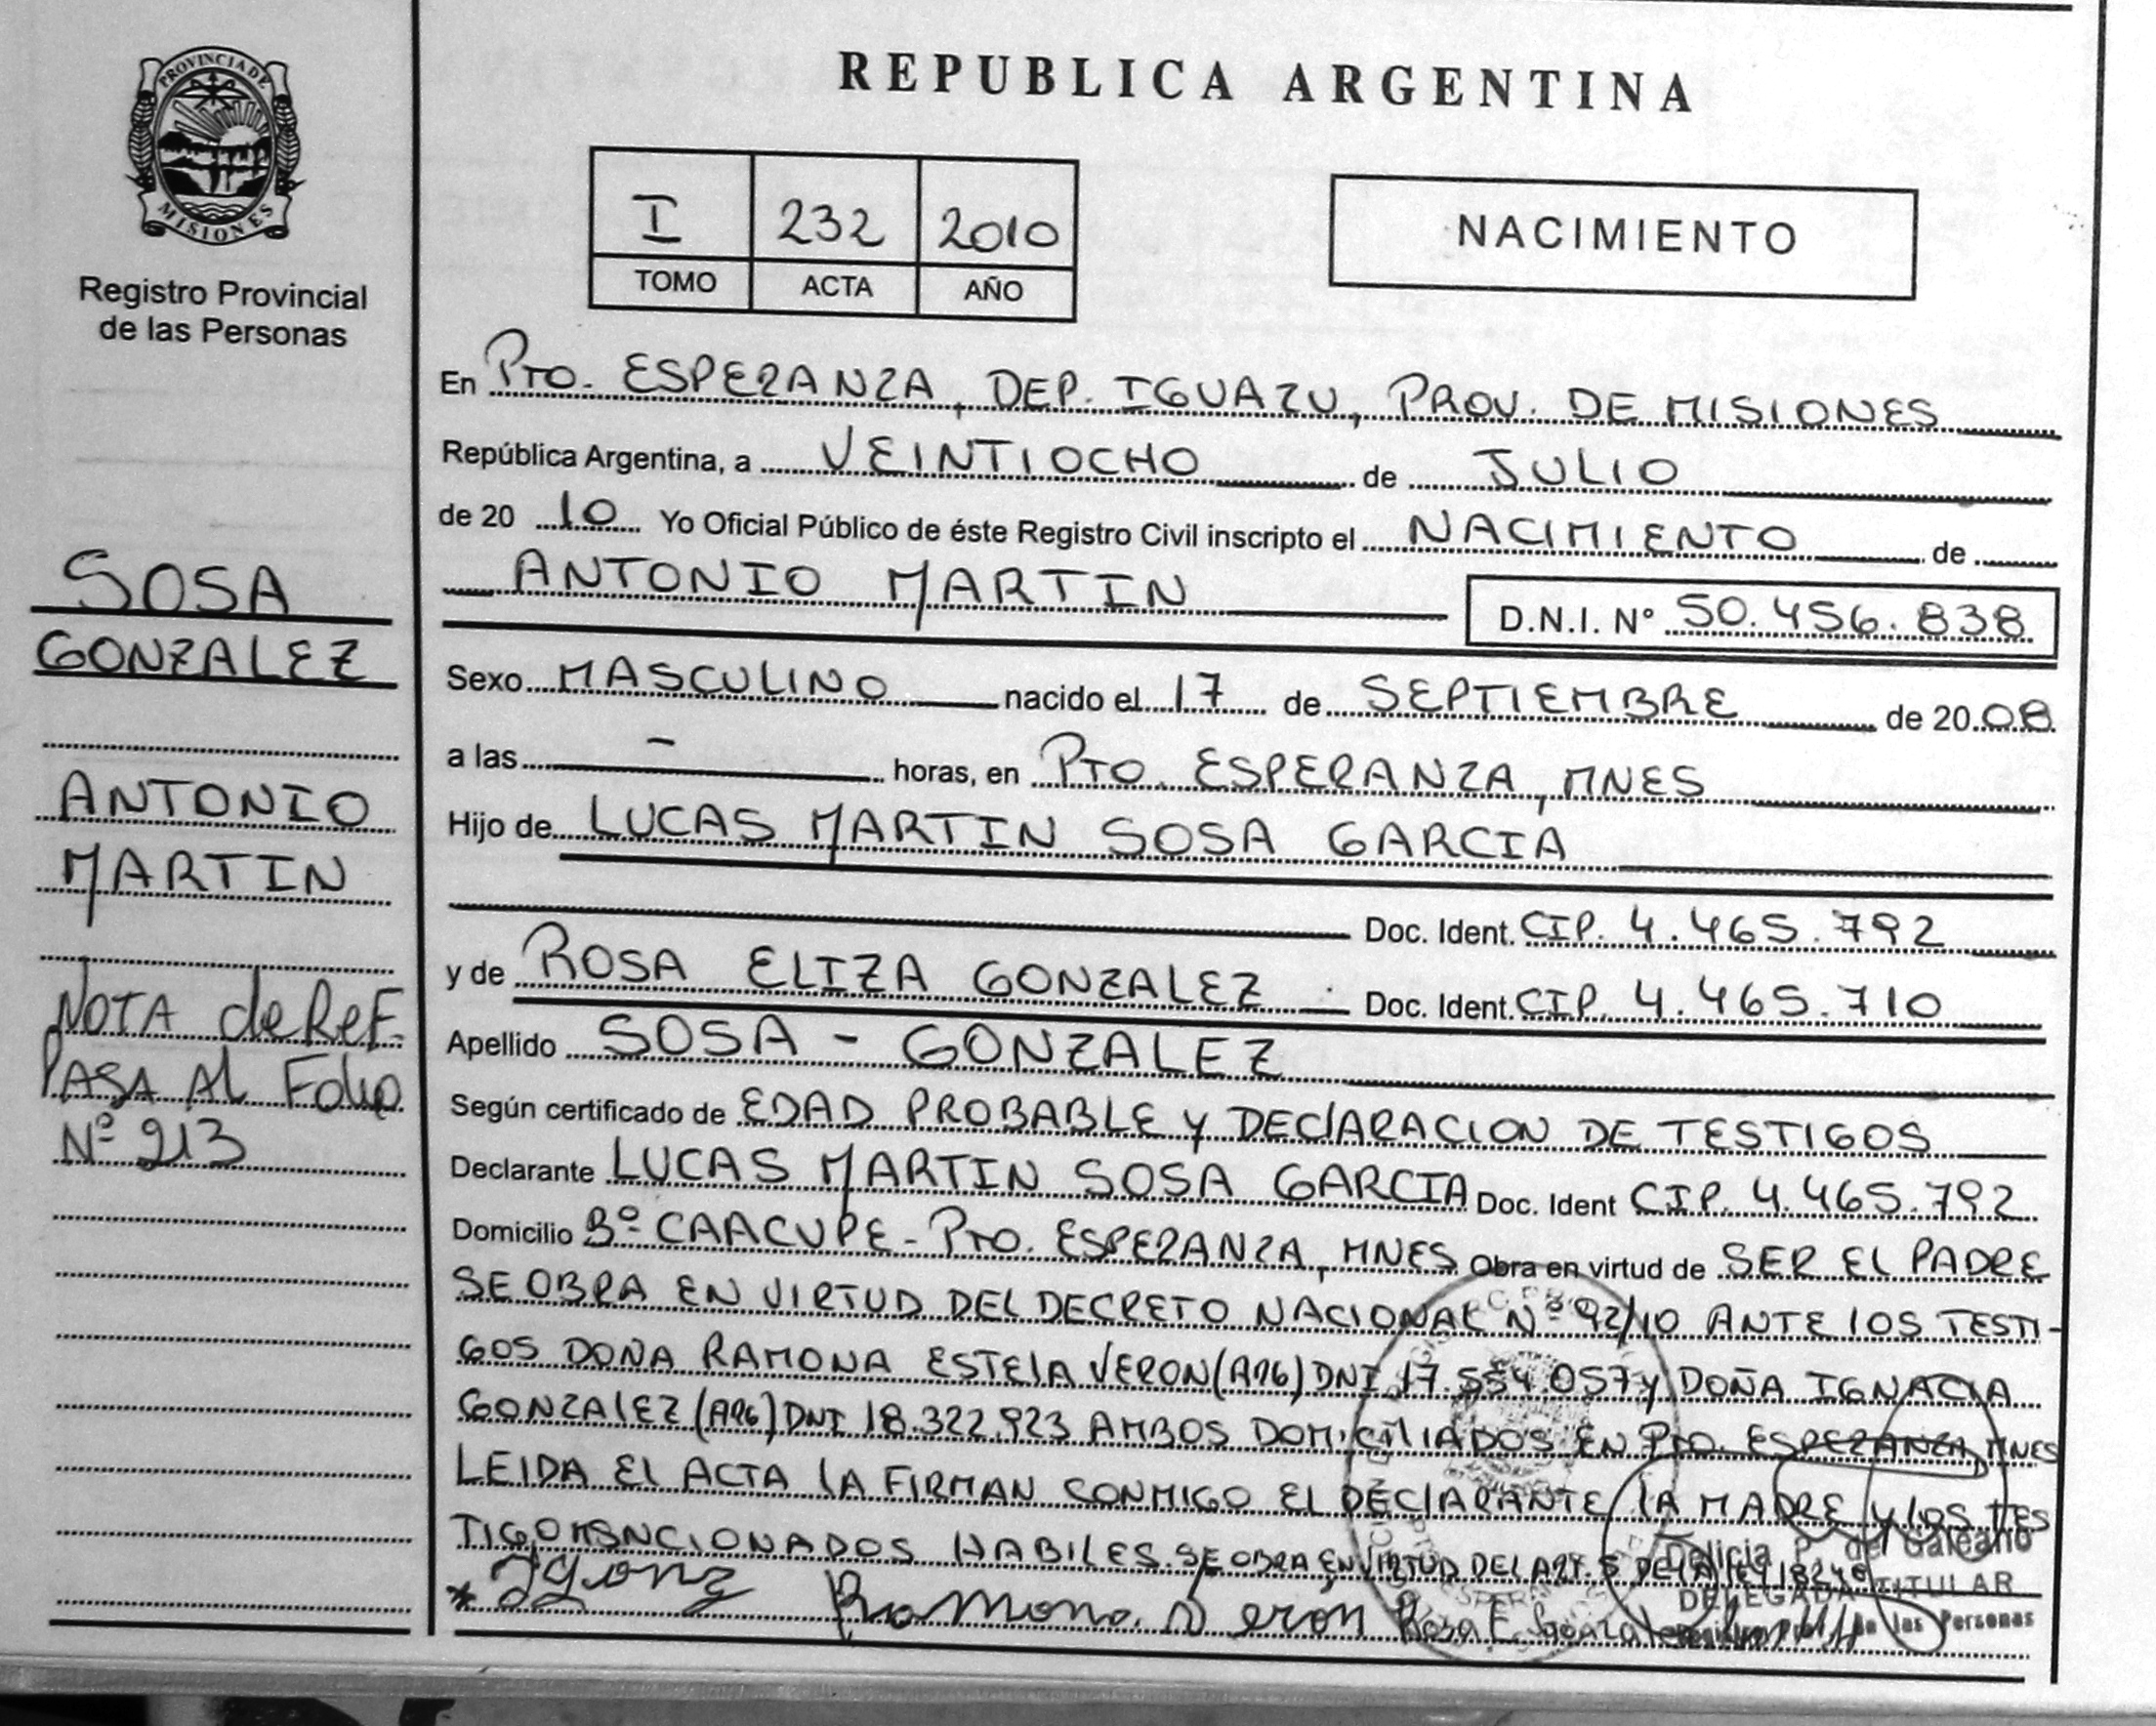 PROVINCIA DE
MISIONES
Registro Provincial
de las Personas
SOSA
GONZALEZ
ANTONIO
MARTIN
NOTA de REF.
PASA AL Folio
Nº 213
REPUBLICA ARGENTINA
I 232 2010
TOMO ACTA AÑO
NACIMIENTO
En Pto. ESPERANZA, DEP. IGUAZU, PROV. DE MISIONES
República Argentina, a VEINTIOCHO de JULIO
de 20 10 Yo Oficial Público de éste Registro Civil inscripto el NACIMIENTO de
ANTONIO MARTIN D.N.I. Nº 50.456.838
Sexo MASCULINO nacido el 17 de SEPTIEMBRE de 20 08
a las - horas, en Pto. ESPERANZA, MNES
Hijo de LUCAS MARTIN SOSA GARCIA
Doc. Ident. CIP. 4.465.792
y de ROSA ELIZA GONZALEZ Doc. Ident. CIP. 4.465.710
Apellido SOSA - GONZALEZ
Según certificado de EDAD PROBABLE Y DEClARACION DE TESTIGOS
Declarante LUCAS MARTIN SOSA GARCIA Doc. Ident CIP. 4.465.792
Domicilio Bº CAACUPE - Pto. ESPERANZA, MNES Obra en virtud de SER EL PADRE
SE OBRA EN VIRTUD DEL DECRETO NACIONAL Nº 92/10 ANTE lOS TESTI-
GOS DOÑA RAMONA ESTElA VERON (ARG) DNI 17.554.057 y DOÑA IGNACIA
GONZAlEZ (ARG) DNI 18.322.923 AMBOS DOMICILIADOS EN Pto. ESPERANZA, MNES
LEIDA El ACTA lA FIRMAN CONMIGO El DEClARANTE lA MADRE y lOS TES
TIGO MSNCIONADOS HABILES. SE OBRA EN VIRTUD DEL ART. 5 DE lA lEY 18248
Delicia P. de Galeano
DELEGADA TITULAR
de las Personas
* Ramona Veron Rosa E. Gonzalez